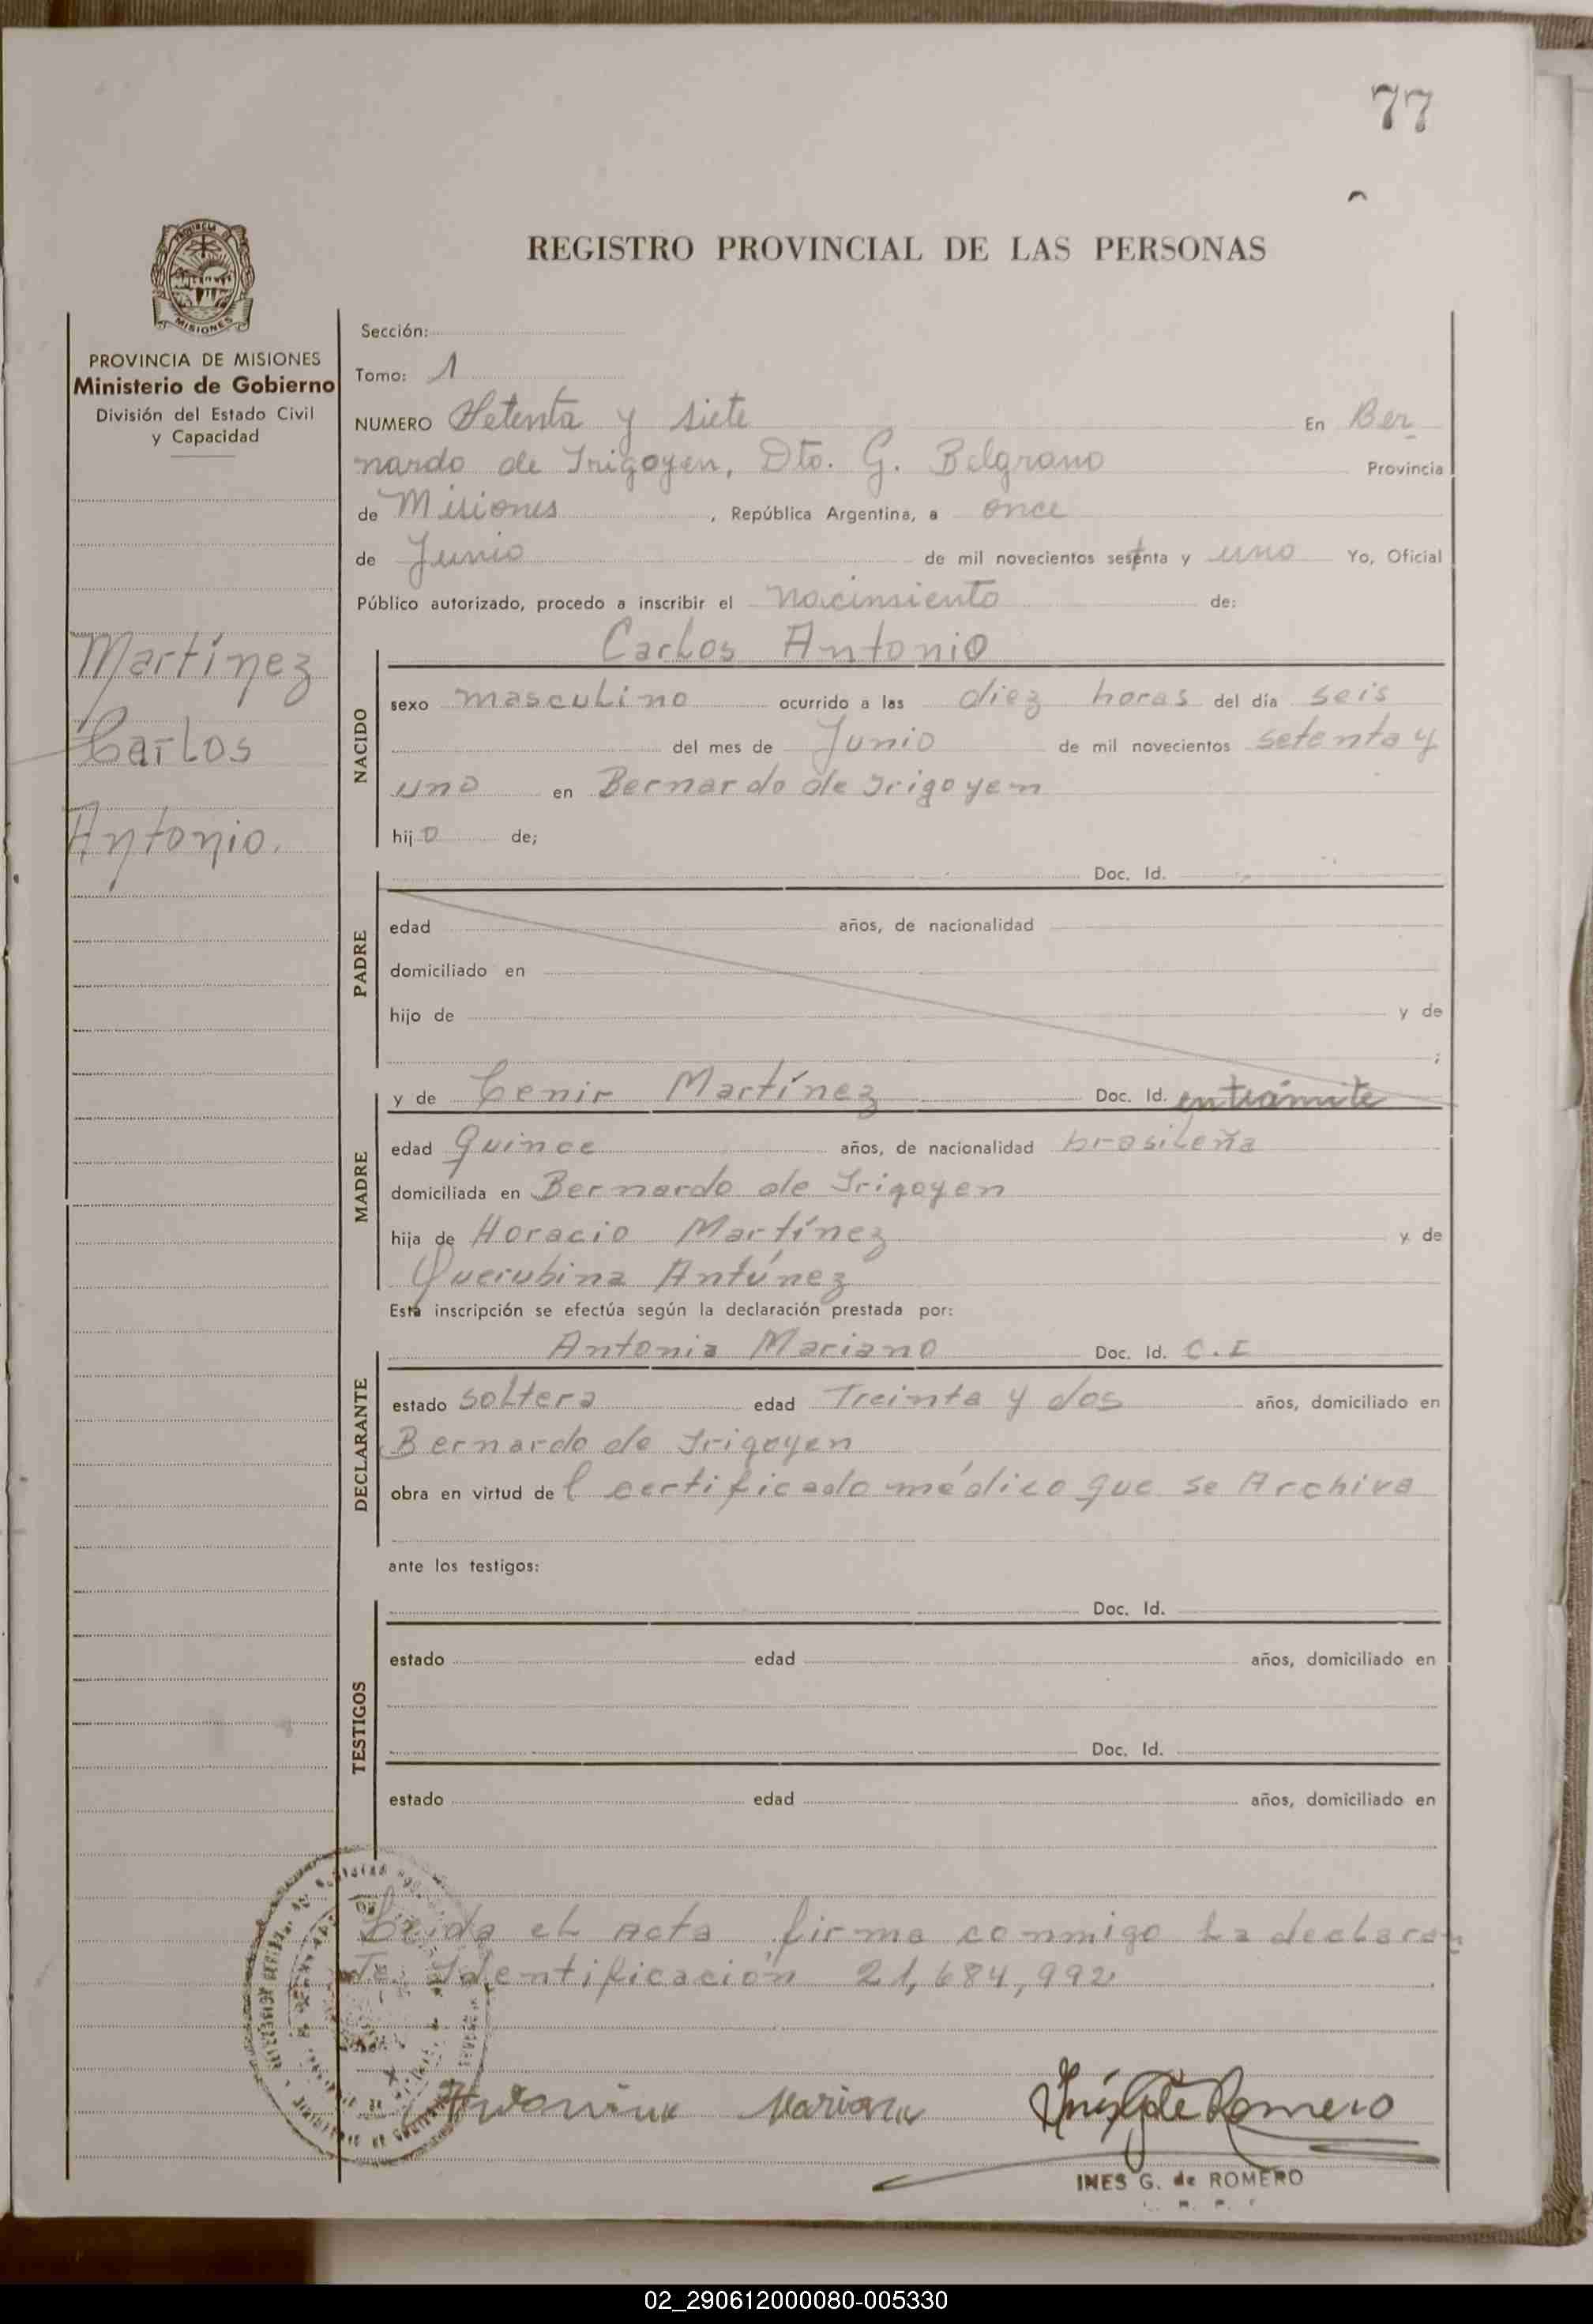 77
REGISTRO PROVINCIAL DE LAS PERSONAS
MISIONES
PROVINCIA DE MISIONES
Ministerio de Gobierno
División del Estado Civil
y Capacidad
Martínez
Carlos
Antonio.
Sección:
Tomo: 1
NUMERO Setenta y siete En Ber
nardo de Irigoyen, Dto. G. Belgrano Provincia
de Misiones , República Argentina, a once
de Junio de mil novecientos setenta y uno Yo, Oficial
Público autorizado, procedo a inscribir el nacimiento de:
Carlos Antonio
NACIDO
sexo masculino ocurrido a las diez horas del día seis
del mes de Junio de mil novecientos setenta y
uno en Bernardo de Irigoyen
hijo de;
PADRE
Doc. Id.
edad años, de nacionalidad
domiciliado en
hijo de y de
;
MADRE
y de Cenir Martínez Doc. Id. en trámite
edad quince años, de nacionalidad brasileña
domiciliada en Bernardo de Irigoyen
hija de Horacio Martínez y de
Querubina Antúnez
Esta inscripción se efectúa según la declaración prestada por:
DECLARANTE
Antonia Mariano Doc. Id. C.I
estado soltera edad Treinta y dos años, domiciliado en
Bernardo de Irigoyen
obra en virtud del certificado médico que se Archiva
ante los testigos:
TESTIGOS
Doc. Id.
estado edad años, domiciliado en
Doc. Id.
estado edad años, domiciliado en
Leida el acta, firma conmigo la declaran
te. Identificación 21,684,992
Mariano Inés G de Romero
INES G. de ROMERO
02_290612000080-005330